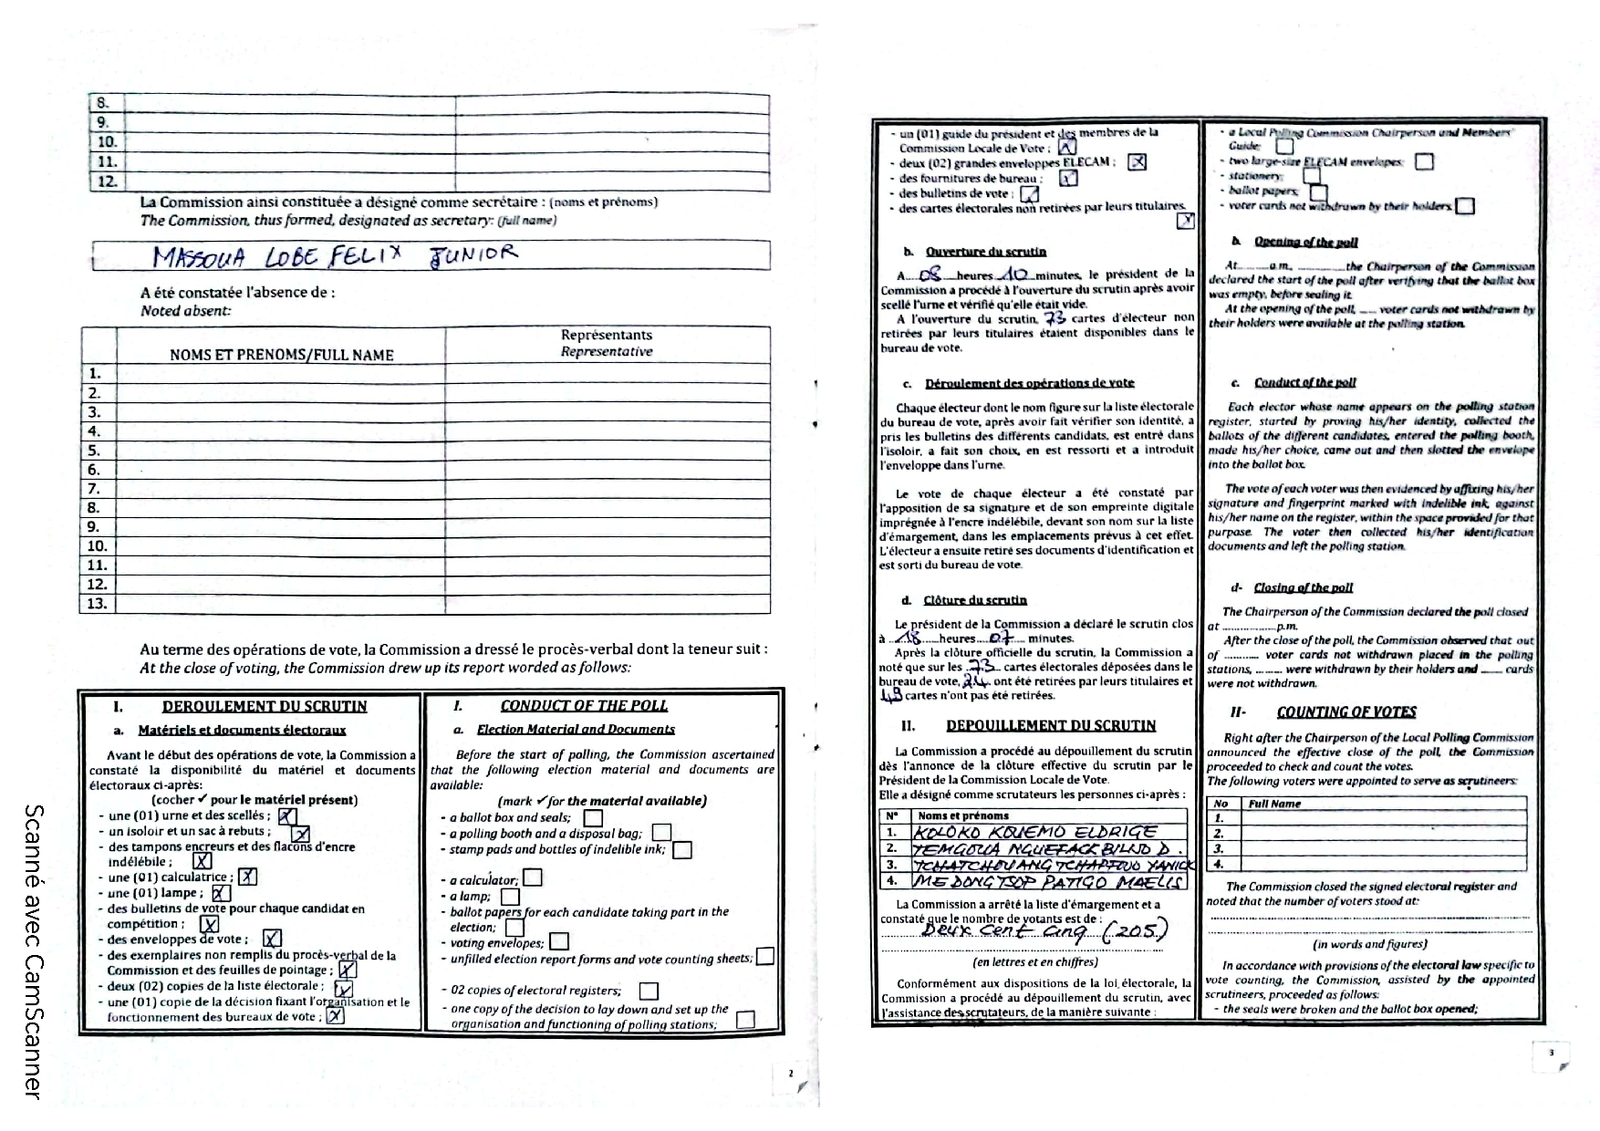 8.
9.
10.
11.
12.
La Commission ainsi constituée a désigné comme secrétaire : (noms et prénoms)
The Commission, thus formed, designated as secretary: (full name)
MASSOUA LOBE FELIX JUNIOR
A été constatée l'absence de :
Noted absent:
NOMS ET PRENOMS/FULL NAME
Représentants
Representative
1.
2.
3.
4.
5.
6.
7.
8.
9.
10.
11.
12.
13.
Au terme des opérations de vote, la Commission a dressé le procès-verbal dont la teneur suit :
At the close of voting, the Commission drew up its report worded as follows:
I. DEROULEMENT DU SCRUTIN
a. Matériels et documents électoraux
Avant le début des opérations de vote, la Commission a
constaté la disponibilité du matériel et documents
électoraux ci-après:
(cocher ✓ pour le matériel présent)
- une (01) urne et des scellés ;
- un isoloir et un sac à rebuts ;
- des tampons encreurs et des flacons d'encre
indélébile ;
- une (01) calculatrice ;
- une (01) lampe ;
- des bulletins de vote pour chaque candidat en
compétition ;
- des enveloppes de vote ;
- des exemplaires non remplis du procès-verbal de la
Commission et des feuilles de pointage ;
- deux (02) copies de la liste électorale ;
- une (01) copie de la décision fixant l'organisation et le
fonctionnement des bureaux de vote ;
I. CONDUCT OF THE POLL
a. Election Material and Documents
Before the start of polling, the Commission ascertained
that the following election material and documents are
available:
(mark ✓ for the material available)
- a ballot box and seals;
- a polling booth and a disposal bag;
- stamp pads and bottles of indelible ink;
- a calculator;
- a lamp;
- ballot papers for each candidate taking part in the
election;
- voting envelopes;
- unfilled election report forms and vote counting sheets;
- 02 copies of electoral registers;
- one copy of the decision to lay down and set up the
organisation and functioning of polling stations;
2
Scanné avec CamScanner
- un (01) guide du président et des membres de la
Commission Locale de Vote ;
- deux (02) grandes enveloppes ELECAM ;
- des fournitures de bureau ;
- des bulletins de vote ;
- des cartes électorales non retirées par leurs titulaires.
b. Ouverture du scrutin
A 08 heures 10 minutes, le président de la
Commission a procédé à l'ouverture du scrutin après avoir
scellé l'urne et vérifié qu'elle était vide.
A l'ouverture du scrutin, 73 cartes d'électeur non
retirées par leurs titulaires étaient disponibles dans le
bureau de vote.
c. Déroulement des opérations de vote
Chaque électeur dont le nom figure sur la liste électorale
du bureau de vote, après avoir fait vérifier son identité, a
pris les bulletins des différents candidats, est entré dans
l'isoloir, a fait son choix, en est ressorti et a introduit
l'enveloppe dans l'urne.
Le vote de chaque électeur a été constaté par
l'apposition de sa signature et de son empreinte digitale
imprégnée à l'encre indélébile, devant son nom sur la liste
d'émargement, dans les emplacements prévus à cet effet.
L'électeur a ensuite retiré ses documents d'identification et
est sorti du bureau de vote.
d. Clôture du scrutin
Le président de la Commission a déclaré le scrutin clos
à 18 heures 07 minutes.
Après la clôture officielle du scrutin, la Commission a
noté que sur les 73 cartes électorales déposées dans le
bureau de vote, 24 ont été retirées par leurs titulaires et
49 cartes n'ont pas été retirées.
II. DEPOUILLEMENT DU SCRUTIN
La Commission a procédé au dépouillement du scrutin
dès l'annonce de la clôture effective du scrutin par le
Président de la Commission Locale de Vote.
Elle a désigné comme scrutateurs les personnes ci-après :
N° Noms et prénoms
1. KOLOKO KOUEMO ELDRIGE
2. TEMGOUA NGUEFACK D.
3. TCHATCHOUANG YANICK
4. MEDONGTSOP PATIGO MAELIS
La Commission a arrêté la liste d'émargement et a
constaté que le nombre de votants est de :
Deux cent cinq (205)
(en lettres et en chiffres)
Conformément aux dispositions de la loi électorale, la
Commission a procédé au dépouillement du scrutin, avec
l'assistance des scrutateurs, de la manière suivante :
- a Local Polling Commission Chairperson and Members'
Guide;
- two large-size ELECAM envelopes;
- stationery;
- ballot papers;
- voter cards not withdrawn by their holders.
b. Opening of the poll
At a.m, the Chairperson of the Commission
declared the start of the poll after verifying that the ballot box
was empty, before sealing it.
At the opening of the poll, voter cards not withdrawn by
their holders were available at the polling station.
c. Conduct of the poll
Each elector whose name appears on the polling station
register, started by proving his/her identity, collected the
ballots of the different candidates, entered the polling booth,
made his/her choice, came out and then slotted the envelope
into the ballot box.
The vote of each voter was then evidenced by affixing his/her
signature and fingerprint marked with indelible ink, against
his/her name on the register, within the space provided for that
purpose. The voter then collected his/her identification
documents and left the polling station.
d- Closing of the poll
The Chairperson of the Commission declared the poll closed
at ............p.m.
After the close of the poll, the Commission observed that out
of .......... voter cards not withdrawn placed in the polling
stations, ........ were withdrawn by their holders and ...... cards
were not withdrawn.
II- COUNTING OF VOTES
Right after the Chairperson of the Local Polling Commission
announced the effective close of the poll, the Commission
proceeded to check and count the votes.
The following voters were appointed to serve as scrutineers:
No Full Name
1.
2.
3.
4.
The Commission closed the signed electoral register and
noted that the number of voters stood at:
(in words and figures)
In accordance with provisions of the electoral law specific to
vote counting, the Commission, assisted by the appointed
scrutineers, proceeded as follows:
- the seals were broken and the ballot box opened;
3